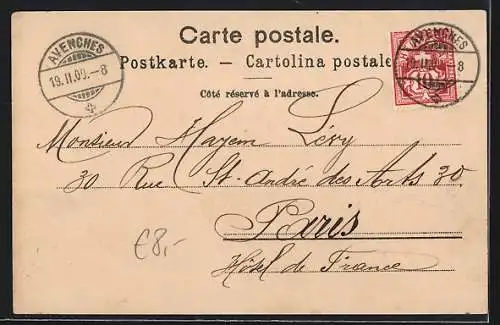 Carte postale.
Postkarte. — Cartolina postale
Côté réservé à l'adresse.
AVENCHES
19.II.00.-8
AVENCHES
19.II.00.-8
10
Monsieur Hazem Lévy
30 Rue St-André des Arts 30
Paris
Hôtel de France
€8,-